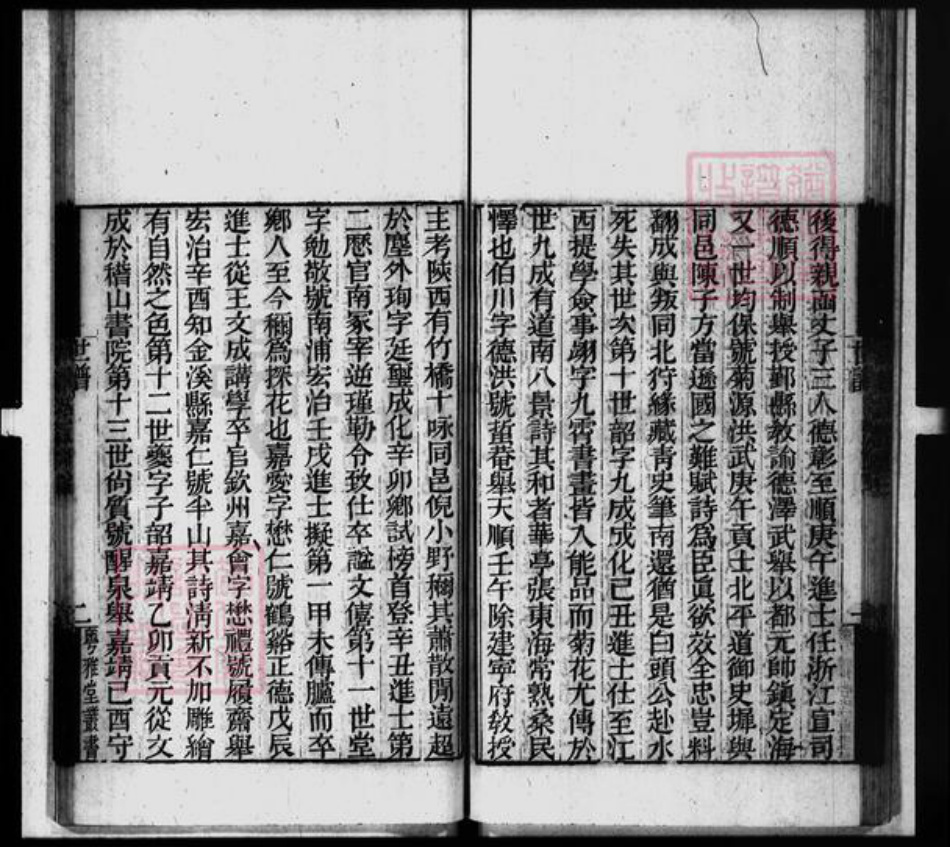 後得親而丈子三人德彰至順庚午進士任浙江宣司
德順以制舉授鄞縣教諭德澤武舉以都元帥鎮定海
又一世均保號菊源洪武庚午貢士北平道御史墀與
同邑陳子方當遜國之難賦詩爲臣眞欲效全忠豈料
翻成與叛同北狩緣藏青史筆南還猶是白頭公赴水
死失其世次第十世韶字九成成化己丑進士仕至江
西提學僉事翊字九霄書畫皆入能品而菊花尤傳於
世九成有道南八景詩其和者華亭張東海常熟桑民
懌也伯川字德洪號蜇菴舉天順壬午除建寧府敎授
主考陝西有竹橋十咏同邑倪小野稱其蕭散閒遠超
於塵外珣字廷璽成化辛卯鄉試榜首登辛丑進士第
二歷官南冢宰逆瑾勒令致仕卒謚文僖第十一世堂
字勉敬號南浦宏治壬戌進士擬第一甲未傳臚而卒
鄉人至今稱爲探花也嘉愛字懋仁號鶴谿正德戊辰
進士從王文成講學卒官欽州嘉會字懋禮號履齋舉
宏治辛酉知金溪縣嘉仁號半山其詩淸新不加雕繪
有自然之色第十二世夔字子韶嘉靖乙卯貢元從文
成於稽山書院第十三世尙質號醒泉舉嘉靖己酉守
世譜
二
粵雅堂叢書